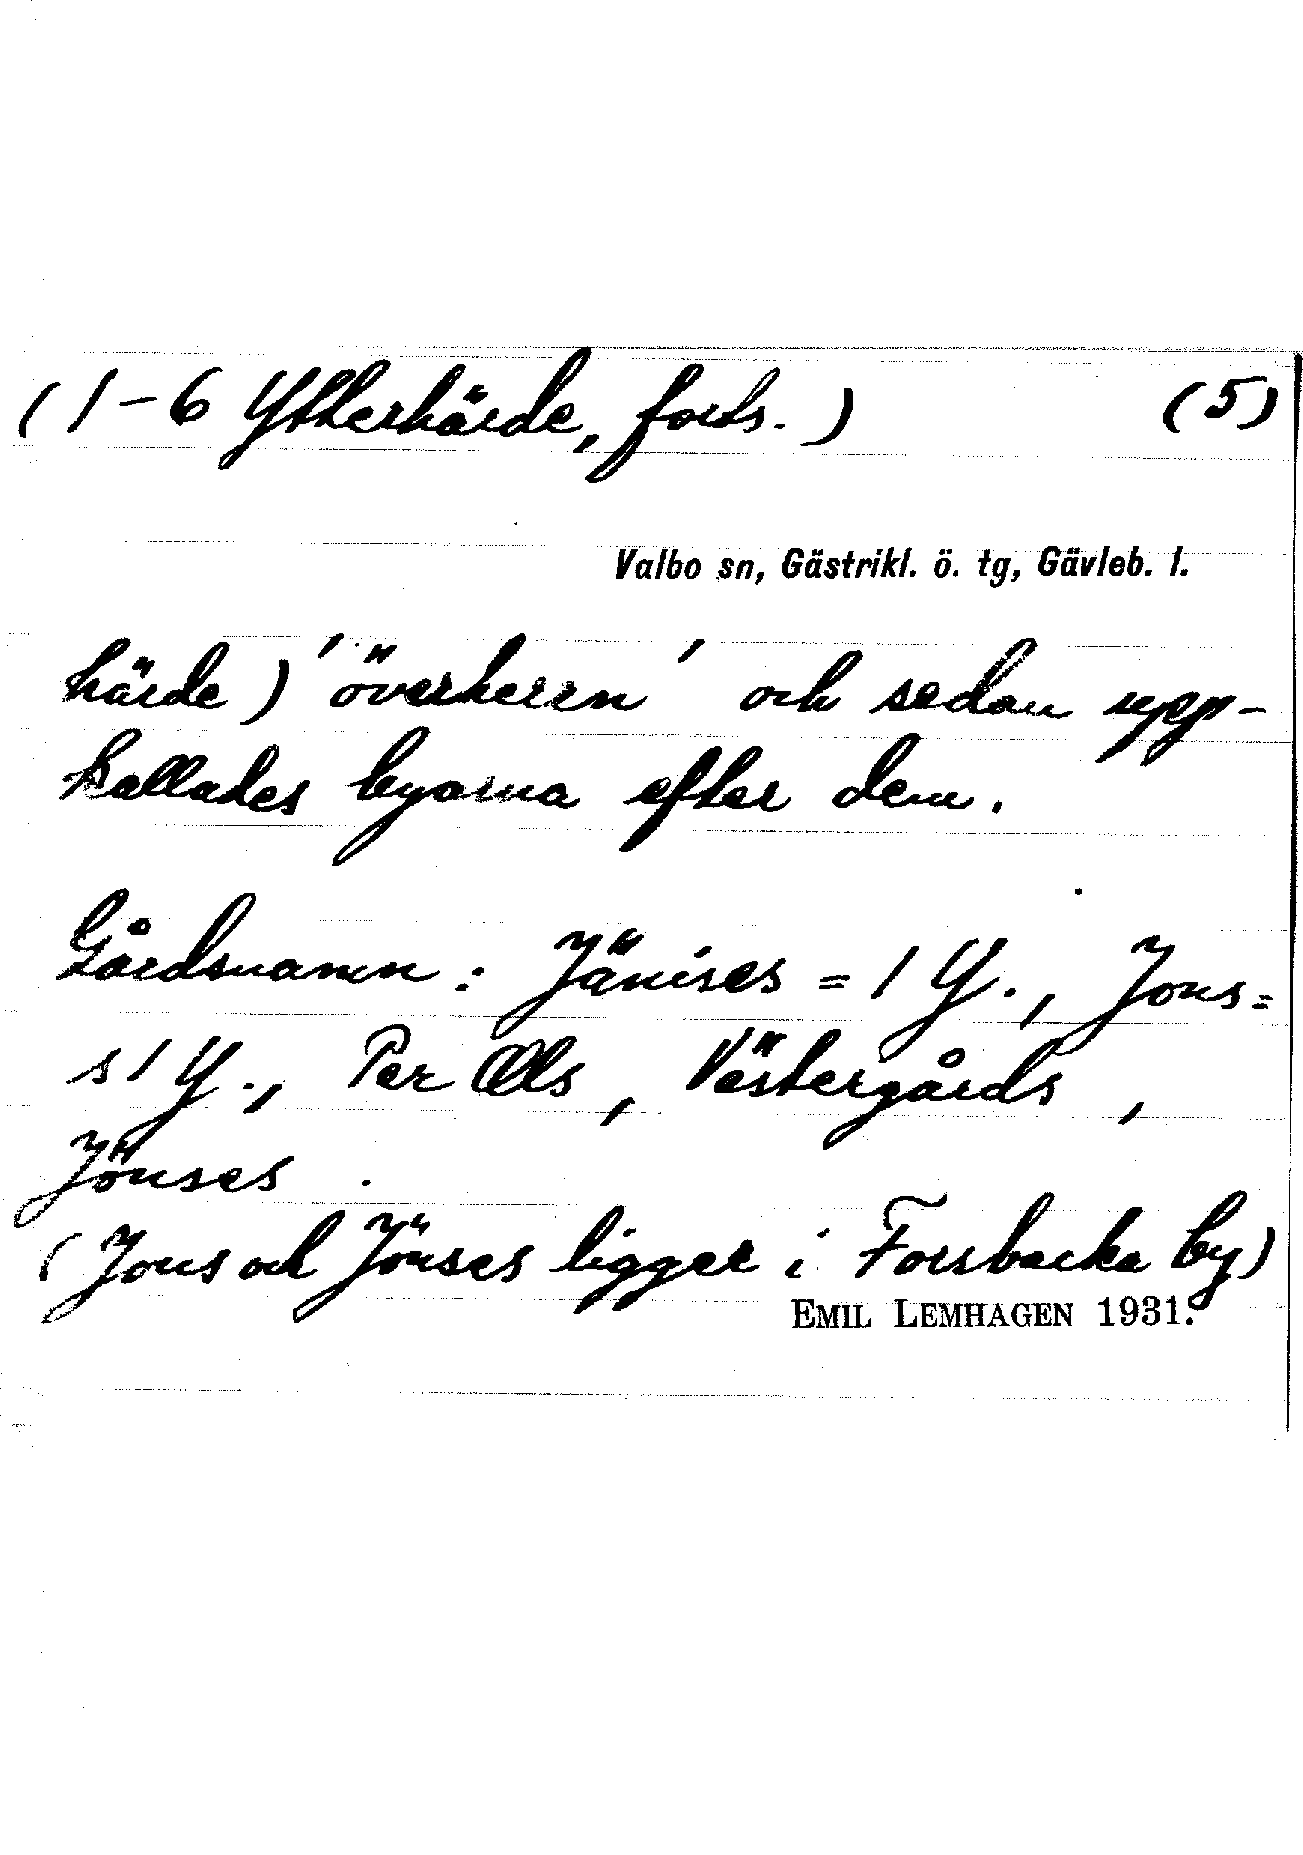 (1-6 Ytterhärde, forts.) (5)
Valbo sn, Gästrikl. ö. tg, Gävleb. l.
härde) 'överherrn' och sedan upp-
kallades byarna efter dem.
Gårdsnamn: Jänises = 1 Y., Jons =
s 1 Y., Per Ols, Västergårds,
Jönses.
(Jons och Jönses ligger i Forsbacka by)
EMIL LEMHAGEN 1931.